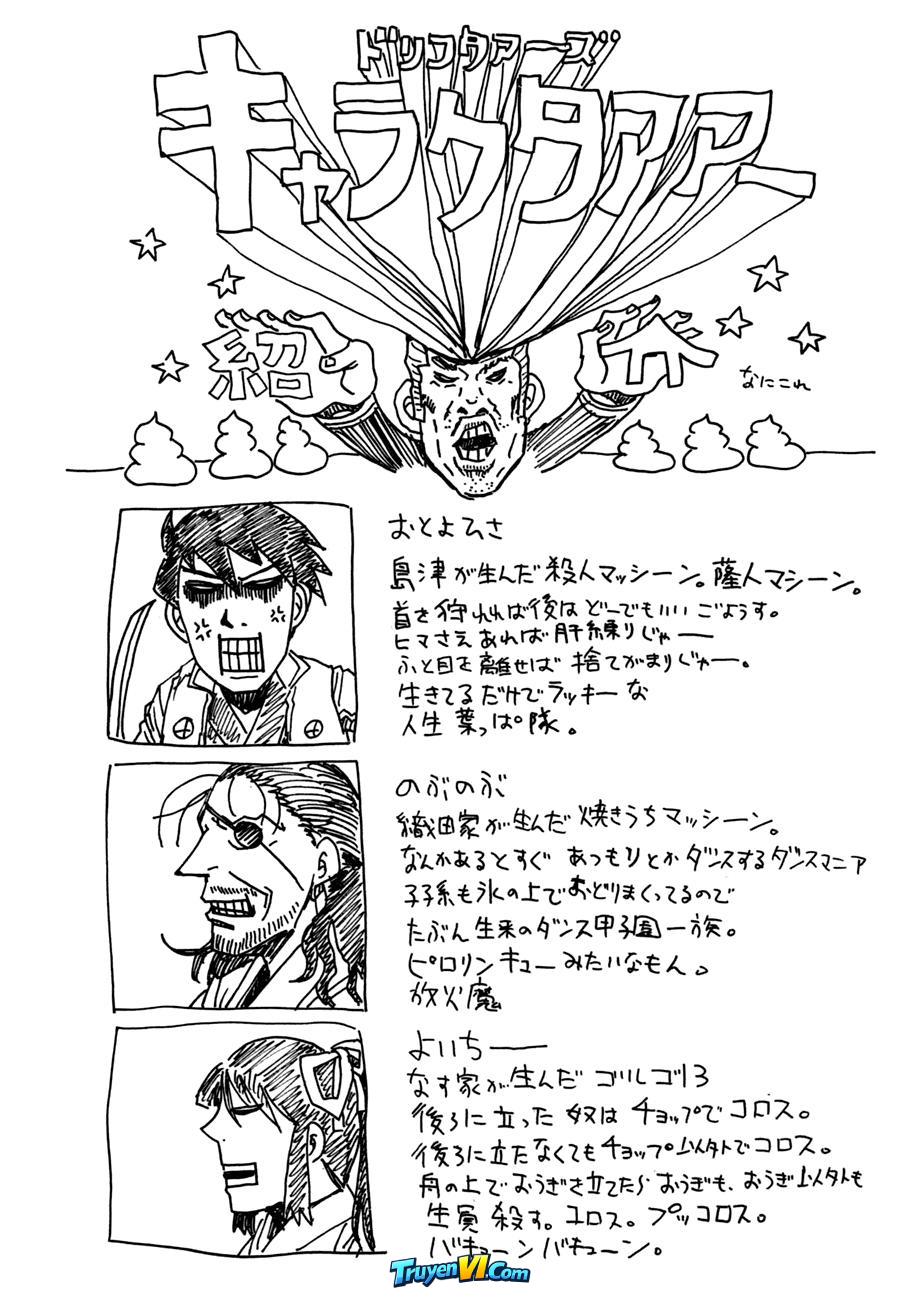 ドリフタアーズ
キャラクタアアー
紹介
なにこれ
おとよひさ
島津が生んだ殺人マッシーン。薩人マシーン。
首さ狩れれば後はどーでもいいごようす。
ヒマさえあれば肝練りじゃー
ふと目を離せば捨てがまりじゃー。
生きてるだけでラッキーな
人生葉っぱ隊。
のぶのぶ
織田家が生んだ焼きうちマッシーン。
なんかあるとすぐあつもりとかダンスするダンスマニア
子孫も氷の上でおどりまくってるので
たぶん生来のダンス甲子園一族。
ピロリンキューみたいなもん。
放火魔
よいちー
なす家が生んだゴルゴ13
後ろに立った奴はチョップでコロス。
後ろに立たなくてもチョップ以外でコロス。
舟の上でおうぎさ立てたらおうぎも、おうぎ以外も
全員殺す。コロス。ブッコロス。
バキューンバキューン。
TruyenVI.Com